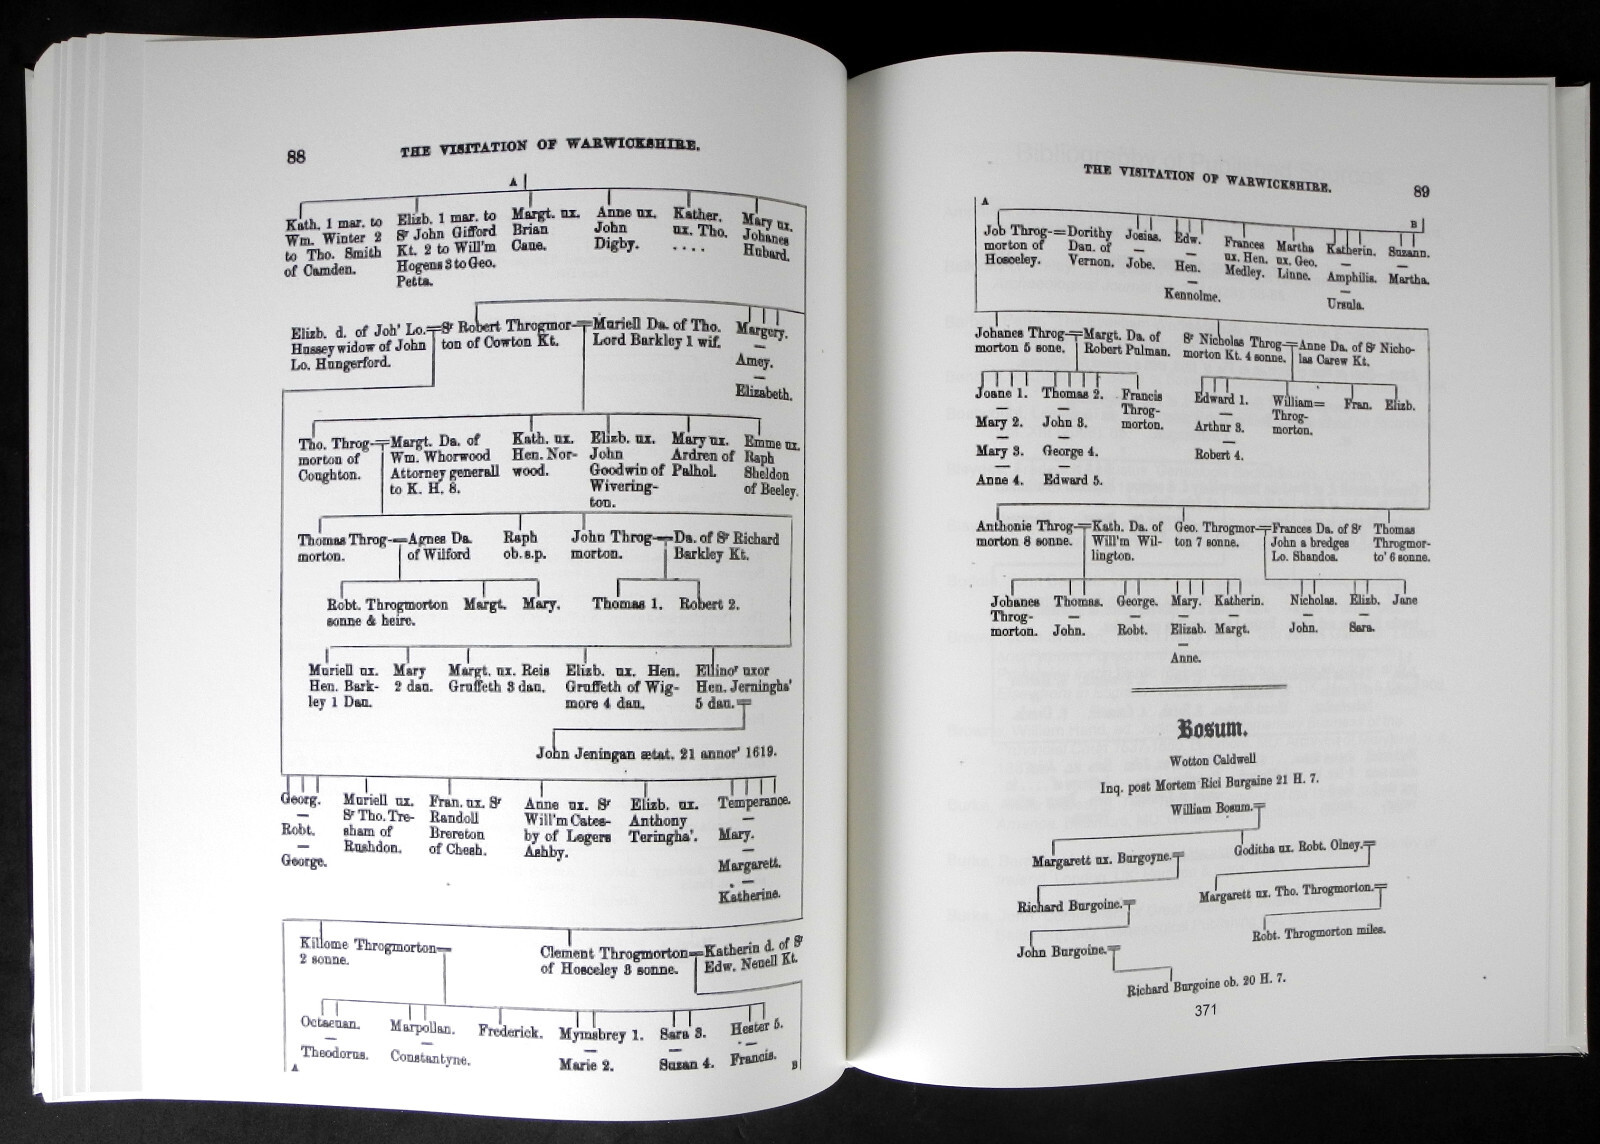 88
THE VISITATION OF WARWICKSHIRE.
A
Kath. 1 mar. to
Wm. Winter 2
to Tho. Smith
of Camden.
Elizb. 1 mar. to
Sr John Gifford
Kt. 2 to Will'm
Hogens 3 to Geo.
Petts.
Margt. ux.
Brian
Cane.
Anne ux.
John
Digby.
Kather.
ux. Tho.
. . . .
Mary ux.
Johanes
Hubard.
Elizb. d. of Joh' Lo.
Hussey widow of John
Lo. Hungerford.
Sr Robert Throgmor-
ton of Cowton Kt.
Muriell Da. of Tho.
Lord Barkley 1 wif.
Margery.
—
Amey.
—
Elizabeth.
Tho. Throg-
morton of
Coughton.
Margt. Da. of
Wm. Whorwood
Attorney generall
to K. H. 8.
Kath. ux.
Hen. Nor-
wood.
Elizb. ux.
John
Goodwin of
Wivering-
ton.
Mary ux.
Ardren of
Palhol.
Emme ux.
Raph
Sheldon
of Beeley.
Thomas Throg-
morton.
Agnes Da.
of Wilford
Raph
ob. s.p.
John Throg-
morton.
Da. of Sr Richard
Barkley Kt.
Robt. Throgmorton
sonne & heire.
Margt.
Mary.
Thomas 1.
Robert 2.
Muriell ux.
Hen. Bark-
ley 1 Dau.
Mary
2 dau.
Margt. ux. Reis
Gruffeth 3 dau.
Elizb. ux. Hen.
Gruffeth of Wig-
more 4 dau.
Ellinor uxor
Hen. Jerningha'
5 dau.
John Jeningan ætat. 21 annor' 1619.
Georg.
—
Robt.
—
George.
Muriell ux.
Sr Tho. Tre-
sham of
Rushdon.
Fran. ux. Sr
Randoll
Brereton
of Chesh.
Anne ux. Sr
Will'm Cates-
by of Legers
Ashby.
Elizb. ux.
Anthony
Teringha'.
Temperance.
—
Mary.
—
Margarett.
—
Katherine.
Killome Throgmorton
2 sonne.
Clement Throgmorton
of Hosceley 3 sonne.
Katherin d. of Sr
Edw. Neuell Kt.
Octaeuan.
—
Theodorus.
Marpollan.
—
Constantyne.
Frederick.
Mymsbrey 1.
—
Marie 2.
Sara 3.
—
Suzan 4.
Hester 5.
—
Francis.
A
B
THE VISITATION OF WARWICKSHIRE.
89
A
B
Job Throg-
morton of
Hosceley.
Dorithy
Dau. of
Vernon.
Josias.
—
Jobe.
Edw.
—
Hen.
—
Kennolme.
Frances
ux. Hen.
Medley.
Martha
ux. Geo.
Linne.
Katherin.
—
Amphilis.
—
Ursula.
Suzann.
—
Martha.
Johanes Throg-
morton 5 sone.
Margt. Da. of
Robert Pulman.
Sr Nicholas Throg-
morton Kt. 4 sonne.
Anne Da. of Sr Nicho-
las Carew Kt.
Joane 1.
—
Mary 2.
—
Mary 3.
—
Anne 4.
Thomas 2.
—
John 3.
—
George 4.
—
Edward 5.
Francis
Throg-
morton.
Edward 1.
—
Arthur 3.
—
Robert 4.
William=
Throg-
morton.
Fran.
Elizb.
Anthonie Throg-
morton 8 sonne.
Kath. Da. of
Will'm Wil-
lington.
Geo. Throgmor-
ton 7 sonne.
Frances Da. of Sr
John a bredges
Lo. Shandos.
Thomas
Throgmor-
to' 6 sonne.
Johanes
Throg-
morton.
Thomas.
—
John.
George.
—
Robt.
Mary.
—
Elizab.
—
Anne.
Katherin.
—
Margt.
Nicholas.
—
John.
Elizb.
—
Sara.
Jane
Bosum.
Wotton Caldwell
Inq. post Mortem Rici Burgaine 21 H. 7.
William Bosum.
Margarett ux. Burgoyne.
Goditha ux. Robt. Olney.
Richard Burgoine.
Margarett ux. Tho. Throgmorton.
John Burgoine.
Robt. Throgmorton miles.
Richard Burgoine ob. 20 H. 7.
371